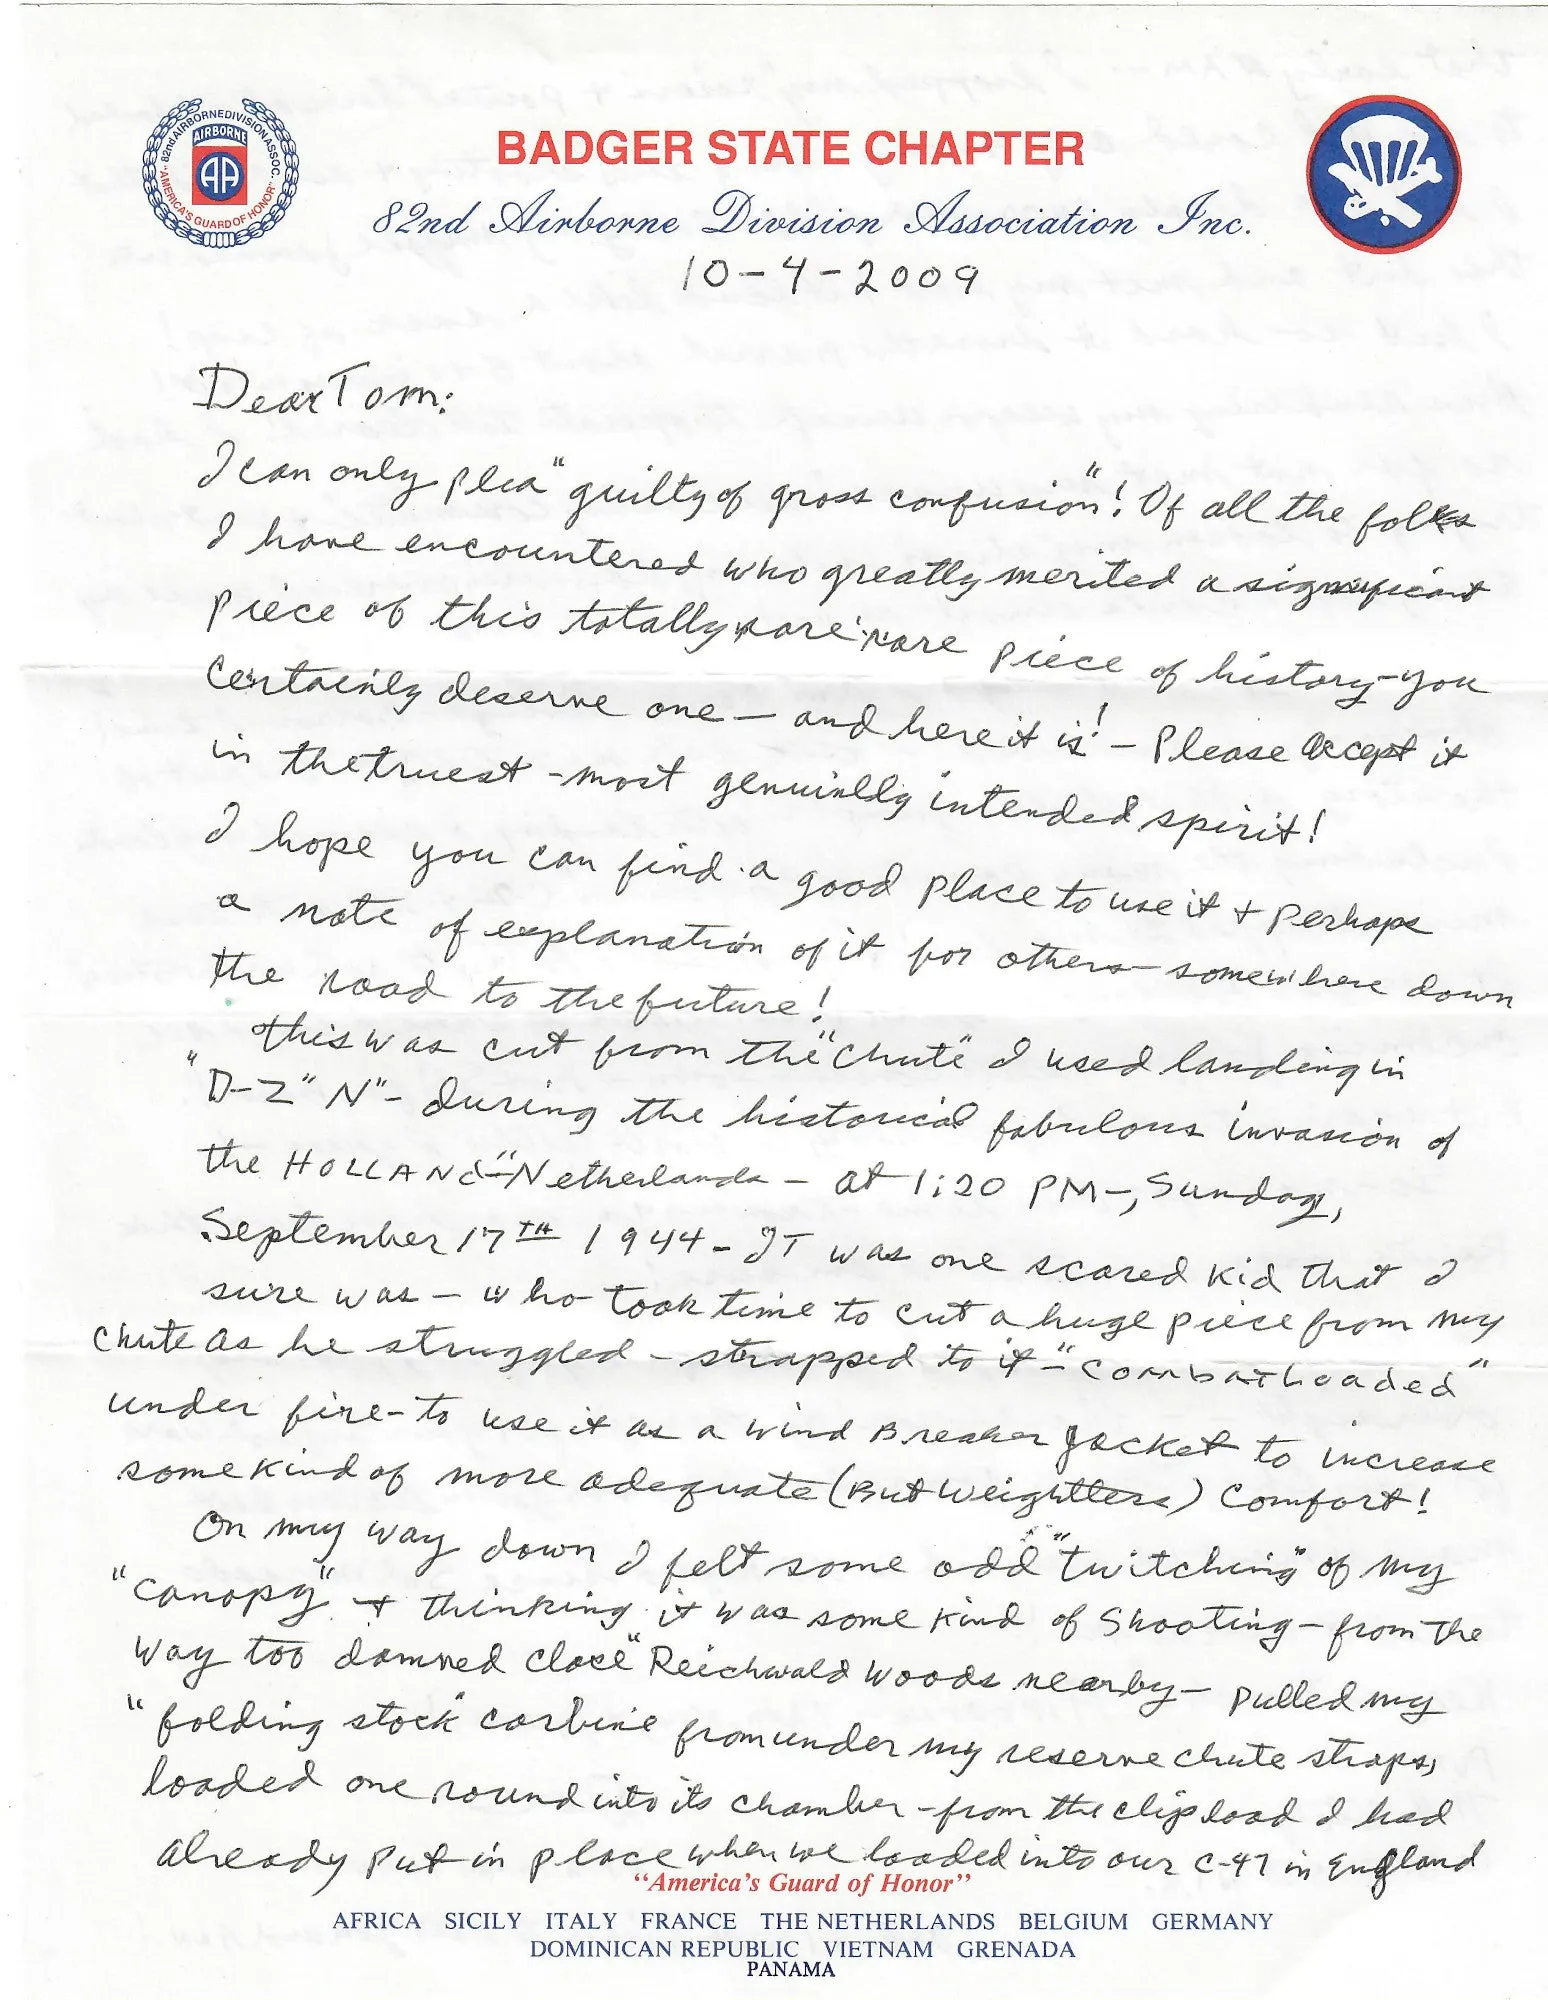 82nd AIRBORNE DIVISION ASSOC.
AIRBORNE
AA
"AMERICA'S GUARD OF HONOR"
BADGER STATE CHAPTER
82nd Airborne Division Association Inc.
10-4-2009
Dear Tom:
I can only plea "guilty of gross confusion"! Of all the folks
I have encountered who greatly merited a significant
piece of this totally rare piece of history - you
certainly deserve one - and here it is! - Please accept it
in the truest - most genuinlly intended spirit!
I hope you can find a good place to use it + perhaps
a note of explanation of it for others - somewhere down
the road to the future!
This was cut from the "chute" I used landing in
"D-Z" N" - during the historical fabulous invasion of
the HOLLANd" - Netherlands - at 1:20 PM -, Sunday,
September 17TH 1944 - IT was one scared kid that I
sure was - who took time to cut a huge piece from my
chute as he struggled - strapped to it - "combat loaded"
under fire - to use it as a wind Breaker Jacket to increase
some kind of more adequate (But weightless) comfort!
On my way down I felt some odd "twitching" of my
"canopy" + thinking it was some kind of shooting - from the
way too damned close "Reichwald woods nearby - pulled my
"folding stock" carbine from under my reserve chute straps,
loaded one round into its chamber - from the clip load I had
already put in place when we loaded into our C-47 in England
"America's Guard of Honor"
AFRICA SICILY ITALY FRANCE THE NETHERLANDS BELGIUM GERMANY
DOMINICAN REPUBLIC VIETNAM GRENADA
PANAMA